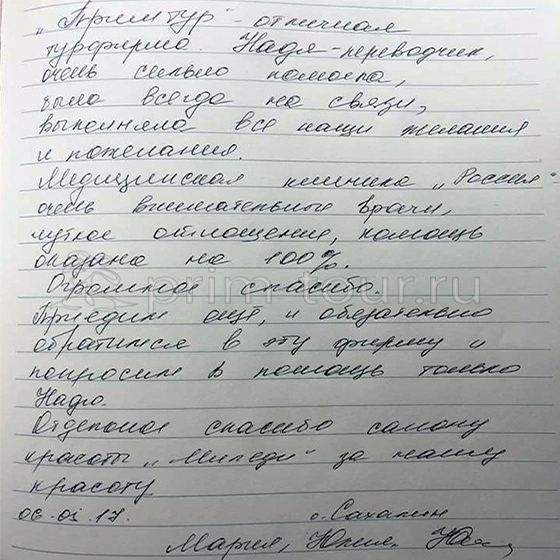 „Прим Тур" - отличная
турфирма. Надя - переводчик,
очень сильно помогла,
была всегда на связи,
выполняла все наши желания
и пожелания.
Медицинская клиника „Россия"
очень внимательные врачи,
чуткое отношение, помощь
оказана на 100%.
Огромное спасибо.
prim-tour.ru
Приедим ещё, и обезательно
обратимся в эту фирму и
попросим в помощь только
Надю.
Отдельное спасибо салону
красоты „Миледи" за нашу
красоту
06.01.17. о. Сахалин
Мария, Юлия,